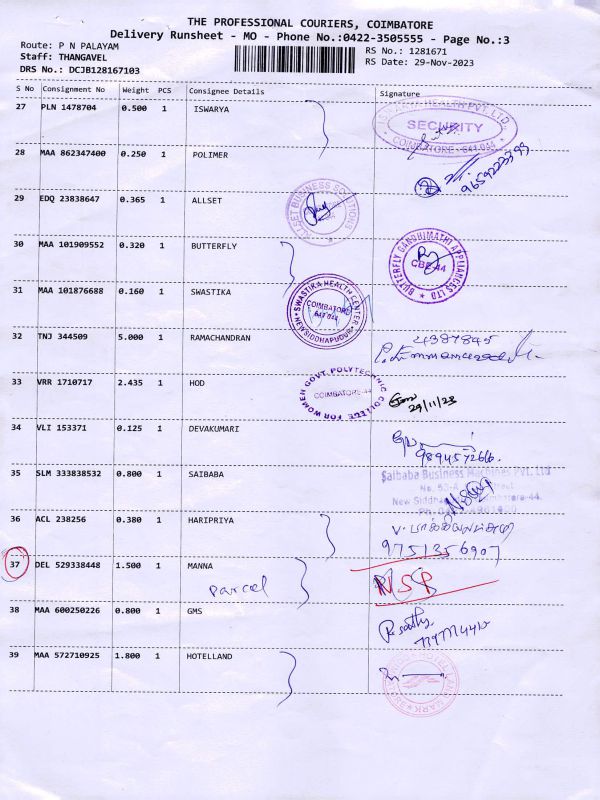 THE PROFESSIONAL COURIERS, COIMBATORE
Delivery Runsheet - MO - Phone No.:0422-3505555 - Page No.:3
Route: P N PALAYAM
RS No.: 1281671
Staff: THANGAVEL
RS Date: 29-Nov-2023
DRS No.: DCJB128167103
S No Consignment No Weight PCS Consignee Details Signature
27 PLN 1478704 0.500 1 ISWARYA
SECURITY
COIMBATORE - 641 044
28 MAA 862347400 0.250 1 POLIMER
29 EDQ 23838647 0.365 1 ALLSET
ALLSET BUSINESS SOLUTIONS
30 MAA 101909552 0.320 1 BUTTERFLY
BUTTERFLY GANDHIMATHI APPLIANCES LTD
CBE-44
31 MAA 101876688 0.160 1 SWASTIKA
SWASTIKA HEALTH CENTER
COIMBATORE
641 044
NEW SIDDHAPUDUR
32 TNJ 344509 5.000 1 RAMACHANDRAN
33 VRR 1710717 2.435 1 HOD
GOVT. POLYTECHNIC COLLEGE FOR WOMEN
COIMBATORE-44
29/11/23
34 VLI 153371 0.125 1 DEVAKUMARI
9894572666.
35 SLM 333838532 0.800 1 SAIBABA
Saibaba Business Machines PVT. Ltd
36 ACL 238256 0.380 1 HARIPRIYA
9751356907
37 DEL 529338448 1.500 1 MANNA
Parcel
NSP
38 MAA 600250226 0.800 1 GMS
39 MAA 572710925 1.800 1 HOTELLAND